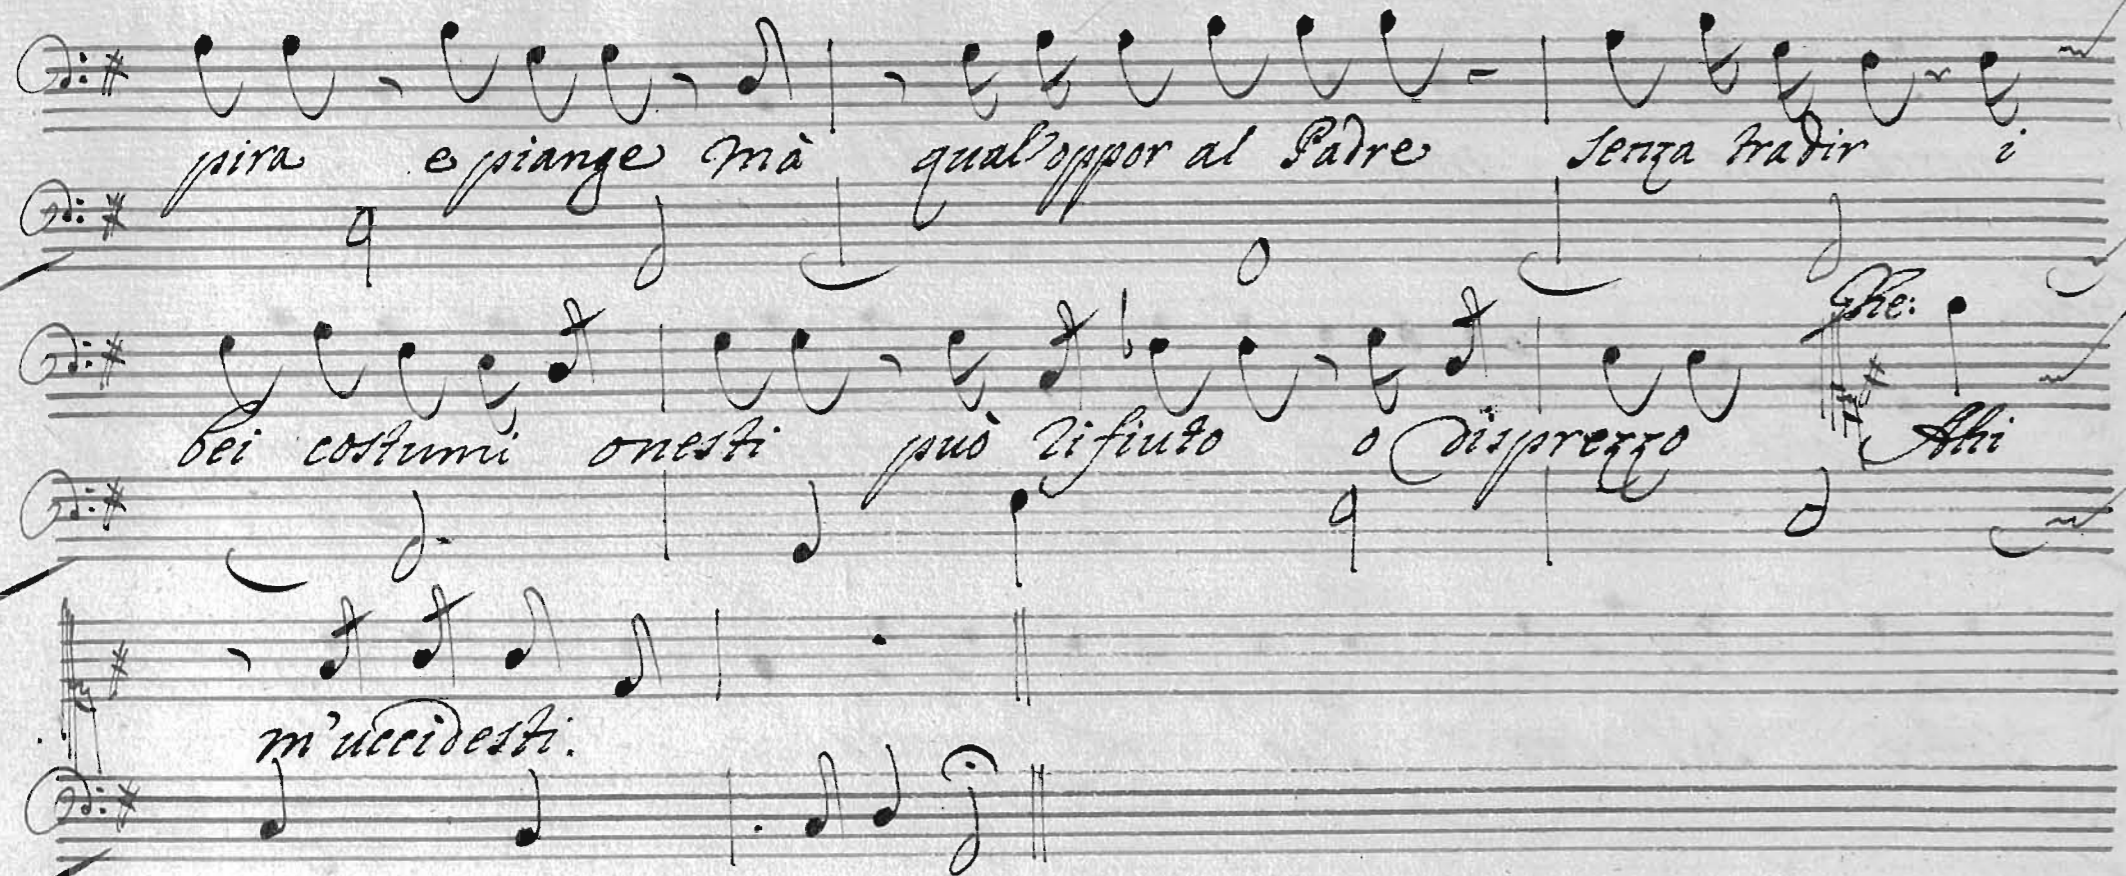 pira e piange mà qual'oppor al Padre senza tradir i
The:
bei costumi onesti può rifiuto o disprezzo Ahi
m'uccidesti.